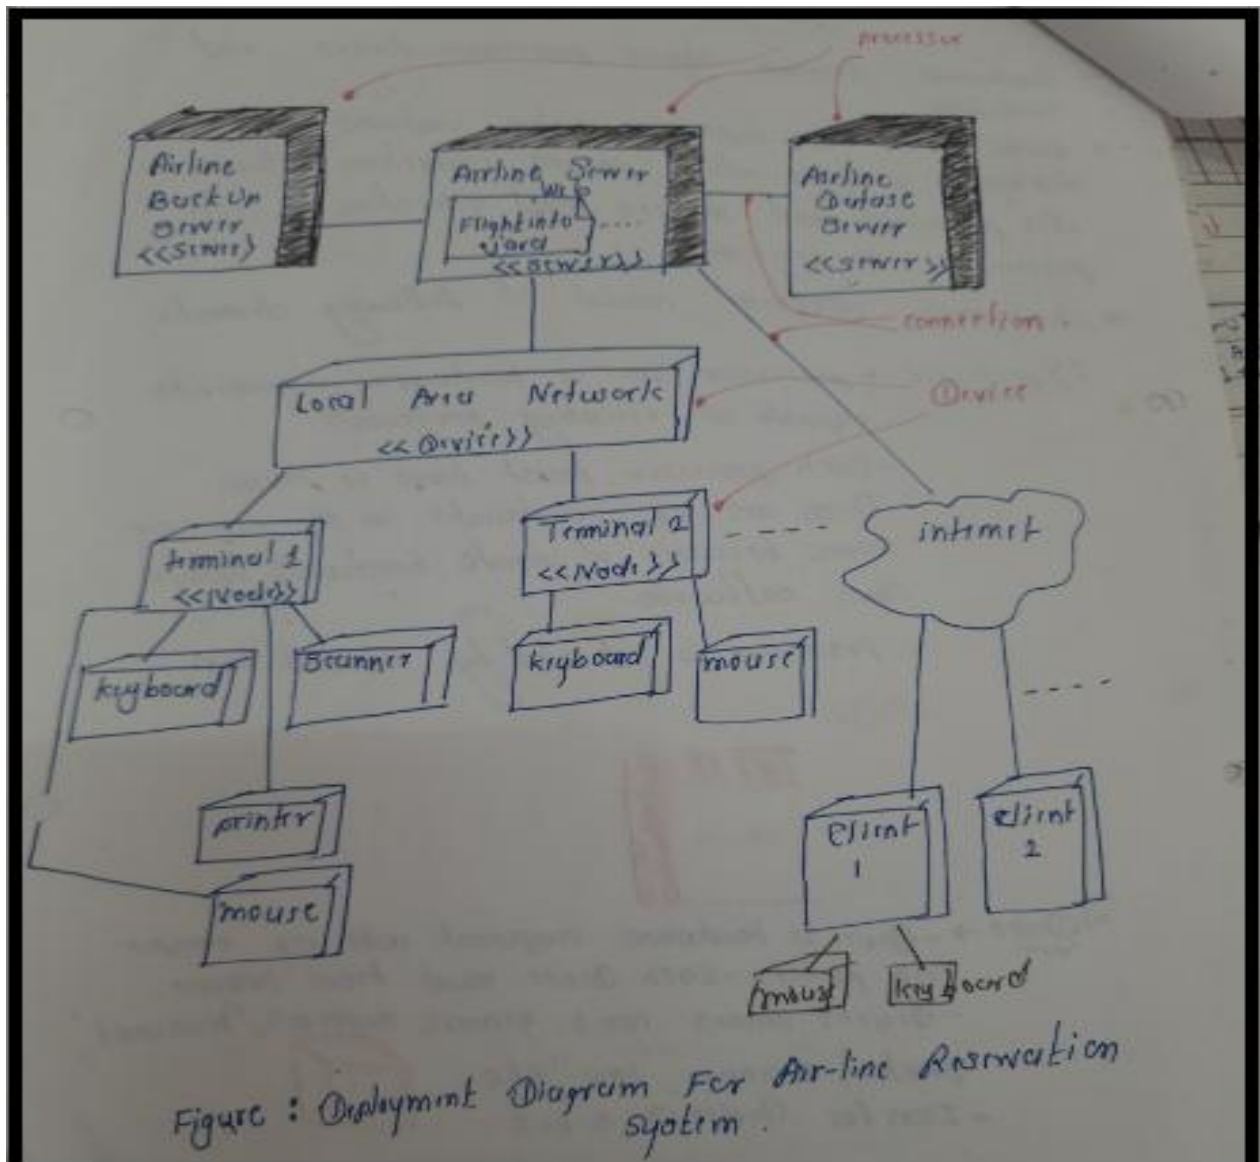 processor
Airline
BackUp
Server
<<Server>>
Airline Server
Flight info
<<Server>>
Airline
Server
<<Server>>
connection
Local Area Network
<<Device>>
Device
Terminal 1
<<Node>>
Terminal 2
<<Node>>
internet
keyboard
Scanner
keyboard
mouse
printer
mouse
Client
1
Client
2
mouse
keyboard
Figure : Deployment Diagram For Air-line Reservation
system.